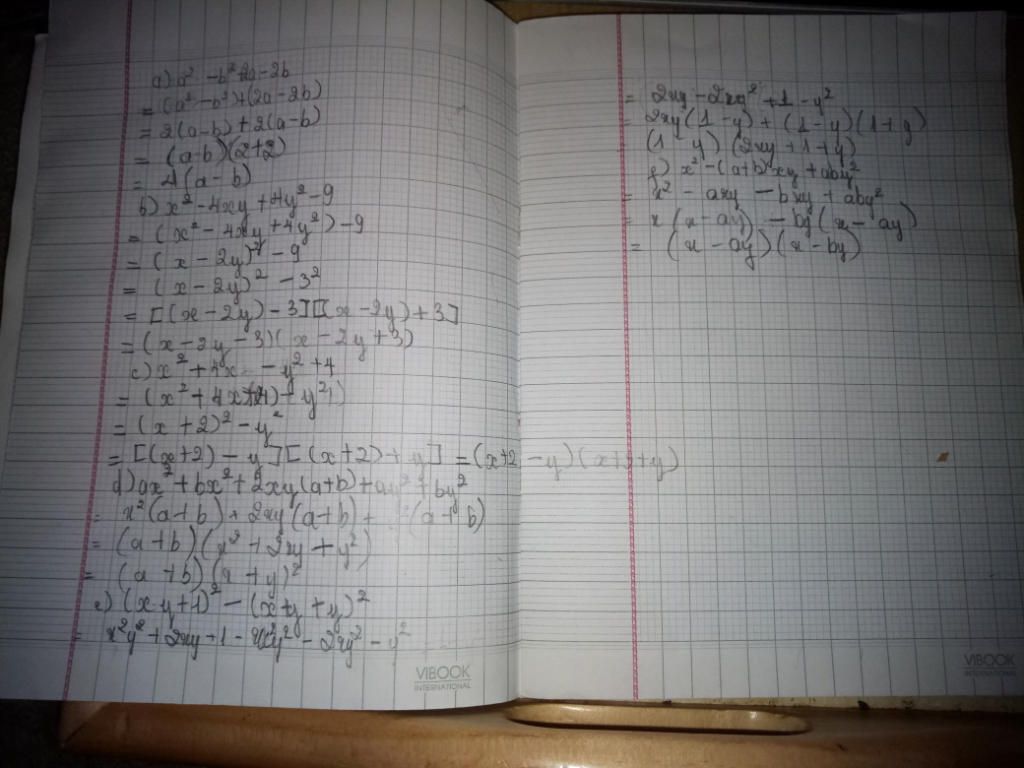 a) a² - b² + 2a - 2b
= (a² - b²) + (2a - 2b)
= 2(a-b) + 2(a-b)
= (a-b)(2+2)
= 4(a-b)
b) x² - 4xy + 4y² - 9
= (x² - 4xy + 4y²) - 9
= (x - 2y)² - 9
= (x - 2y)² - 3²
= [(x - 2y) - 3][(x - 2y) + 3]
= (x - 2y - 3)(x - 2y + 3)
c) x² + 4x - y² + 4
= (x² + 4x + 4) - y²
= (x + 2)² - y²
= [(x+2) - y][(x+2) + y] = (x+2 - y)(x+2+y)
d) ax² + bx² + 2xy(a+b) + ay² + by²
= x²(a+b) + 2xy(a+b) + (a+b)
= (a+b)(x² + 2xy + y²)
= (a+b)(x+y)²
e) (xy+1)² - (x+y+y)²
= x²y² + 2xy + 1 - x²y² - 2xy² - y²
VIBOOK
INTERNATIONAL
= 2xy - 2xy² + 1 - y²
= 2xy(1-y) + (1-y)(1+y)
(1-y)(2xy+1+y)
f) x² - (a+b)xy + aby²
= x² - axy - bxy + aby²
= x(x-ay) - by(x-ay)
= (x-ay)(x-by)
VIBOOK
INTERNATIONAL